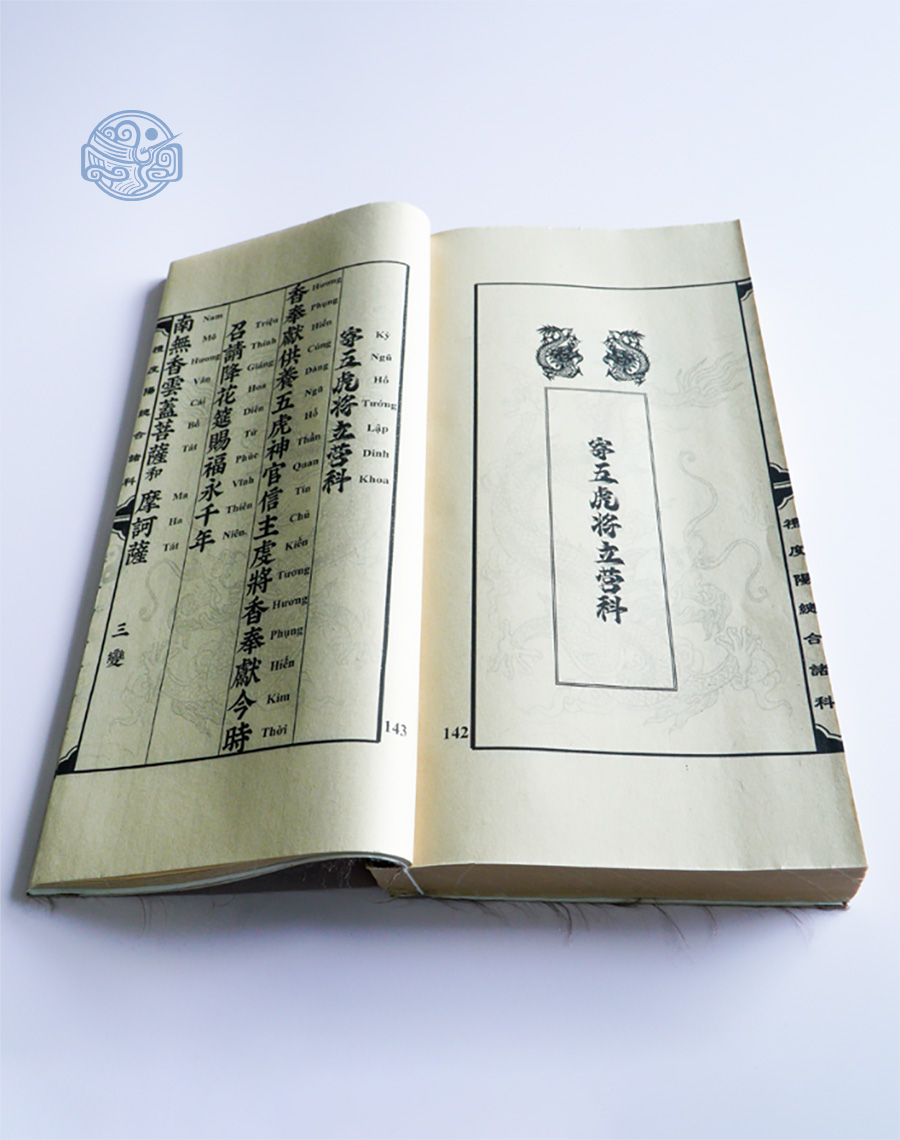 五虎将立营科
禮度陽總合諸科
142
Ký Ngũ Hổ Tướng Lập Dinh Khoa
五虎将立营科
Hương Phụng Hiến Cúng Dàng Ngũ Hổ Thần Quan Tín Chủ Kiền Tương Hương Phụng Hiến Kim Thời
香奉獻供養五虎神官信主虔將香奉獻今時
Triệu Thỉnh Giáng Hoa Diên Tứ Phúc Vĩnh Thiên Niên.
召請降花筵賜福永千年
Nam Mô Hương Vân Cái Bồ Tát Ma Ha Tát
南無香雲蓋菩薩和 摩訶薩 三變
禮度陽總合諸科
143